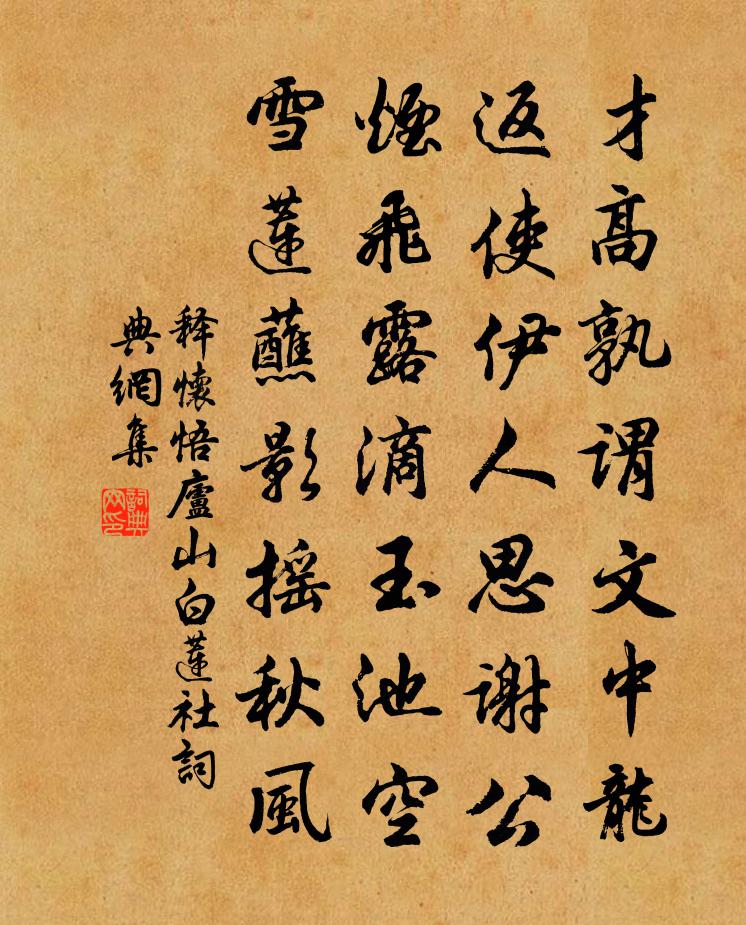 才高孰謂文中龍
返使伊人思謝公
煙飛露滴玉池空
雪蓮蘸影摇秋風
释懷悟廬山白蓮社詞
典網集
詞典网印